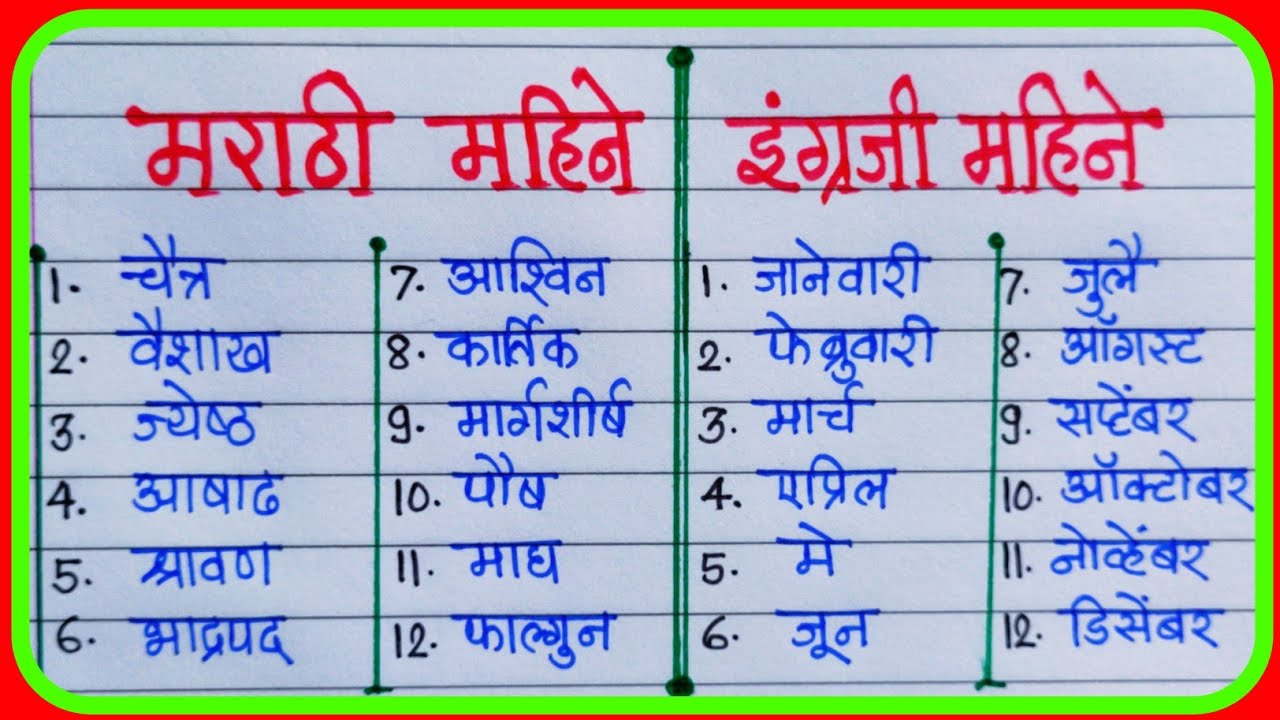 मराठी महिने
1. चैत्र
2. वैशाख
3. ज्येष्ठ
4. आषाढ
5. श्रावण
6. भाद्रपद
7. आश्विन
8. कार्तिक
9. मार्गशीर्ष
10. पौष
11. माघ
12. फाल्गुन
इंग्रजी महिने
1. जानेवारी
2. फेब्रुवारी
3. मार्च
4. एप्रिल
5. मे
6. जून
7. जुलै
8. ऑगस्ट
9. सप्टेंबर
10. ऑक्टोबर
11. नोव्हेंबर
12. डिसेंबर